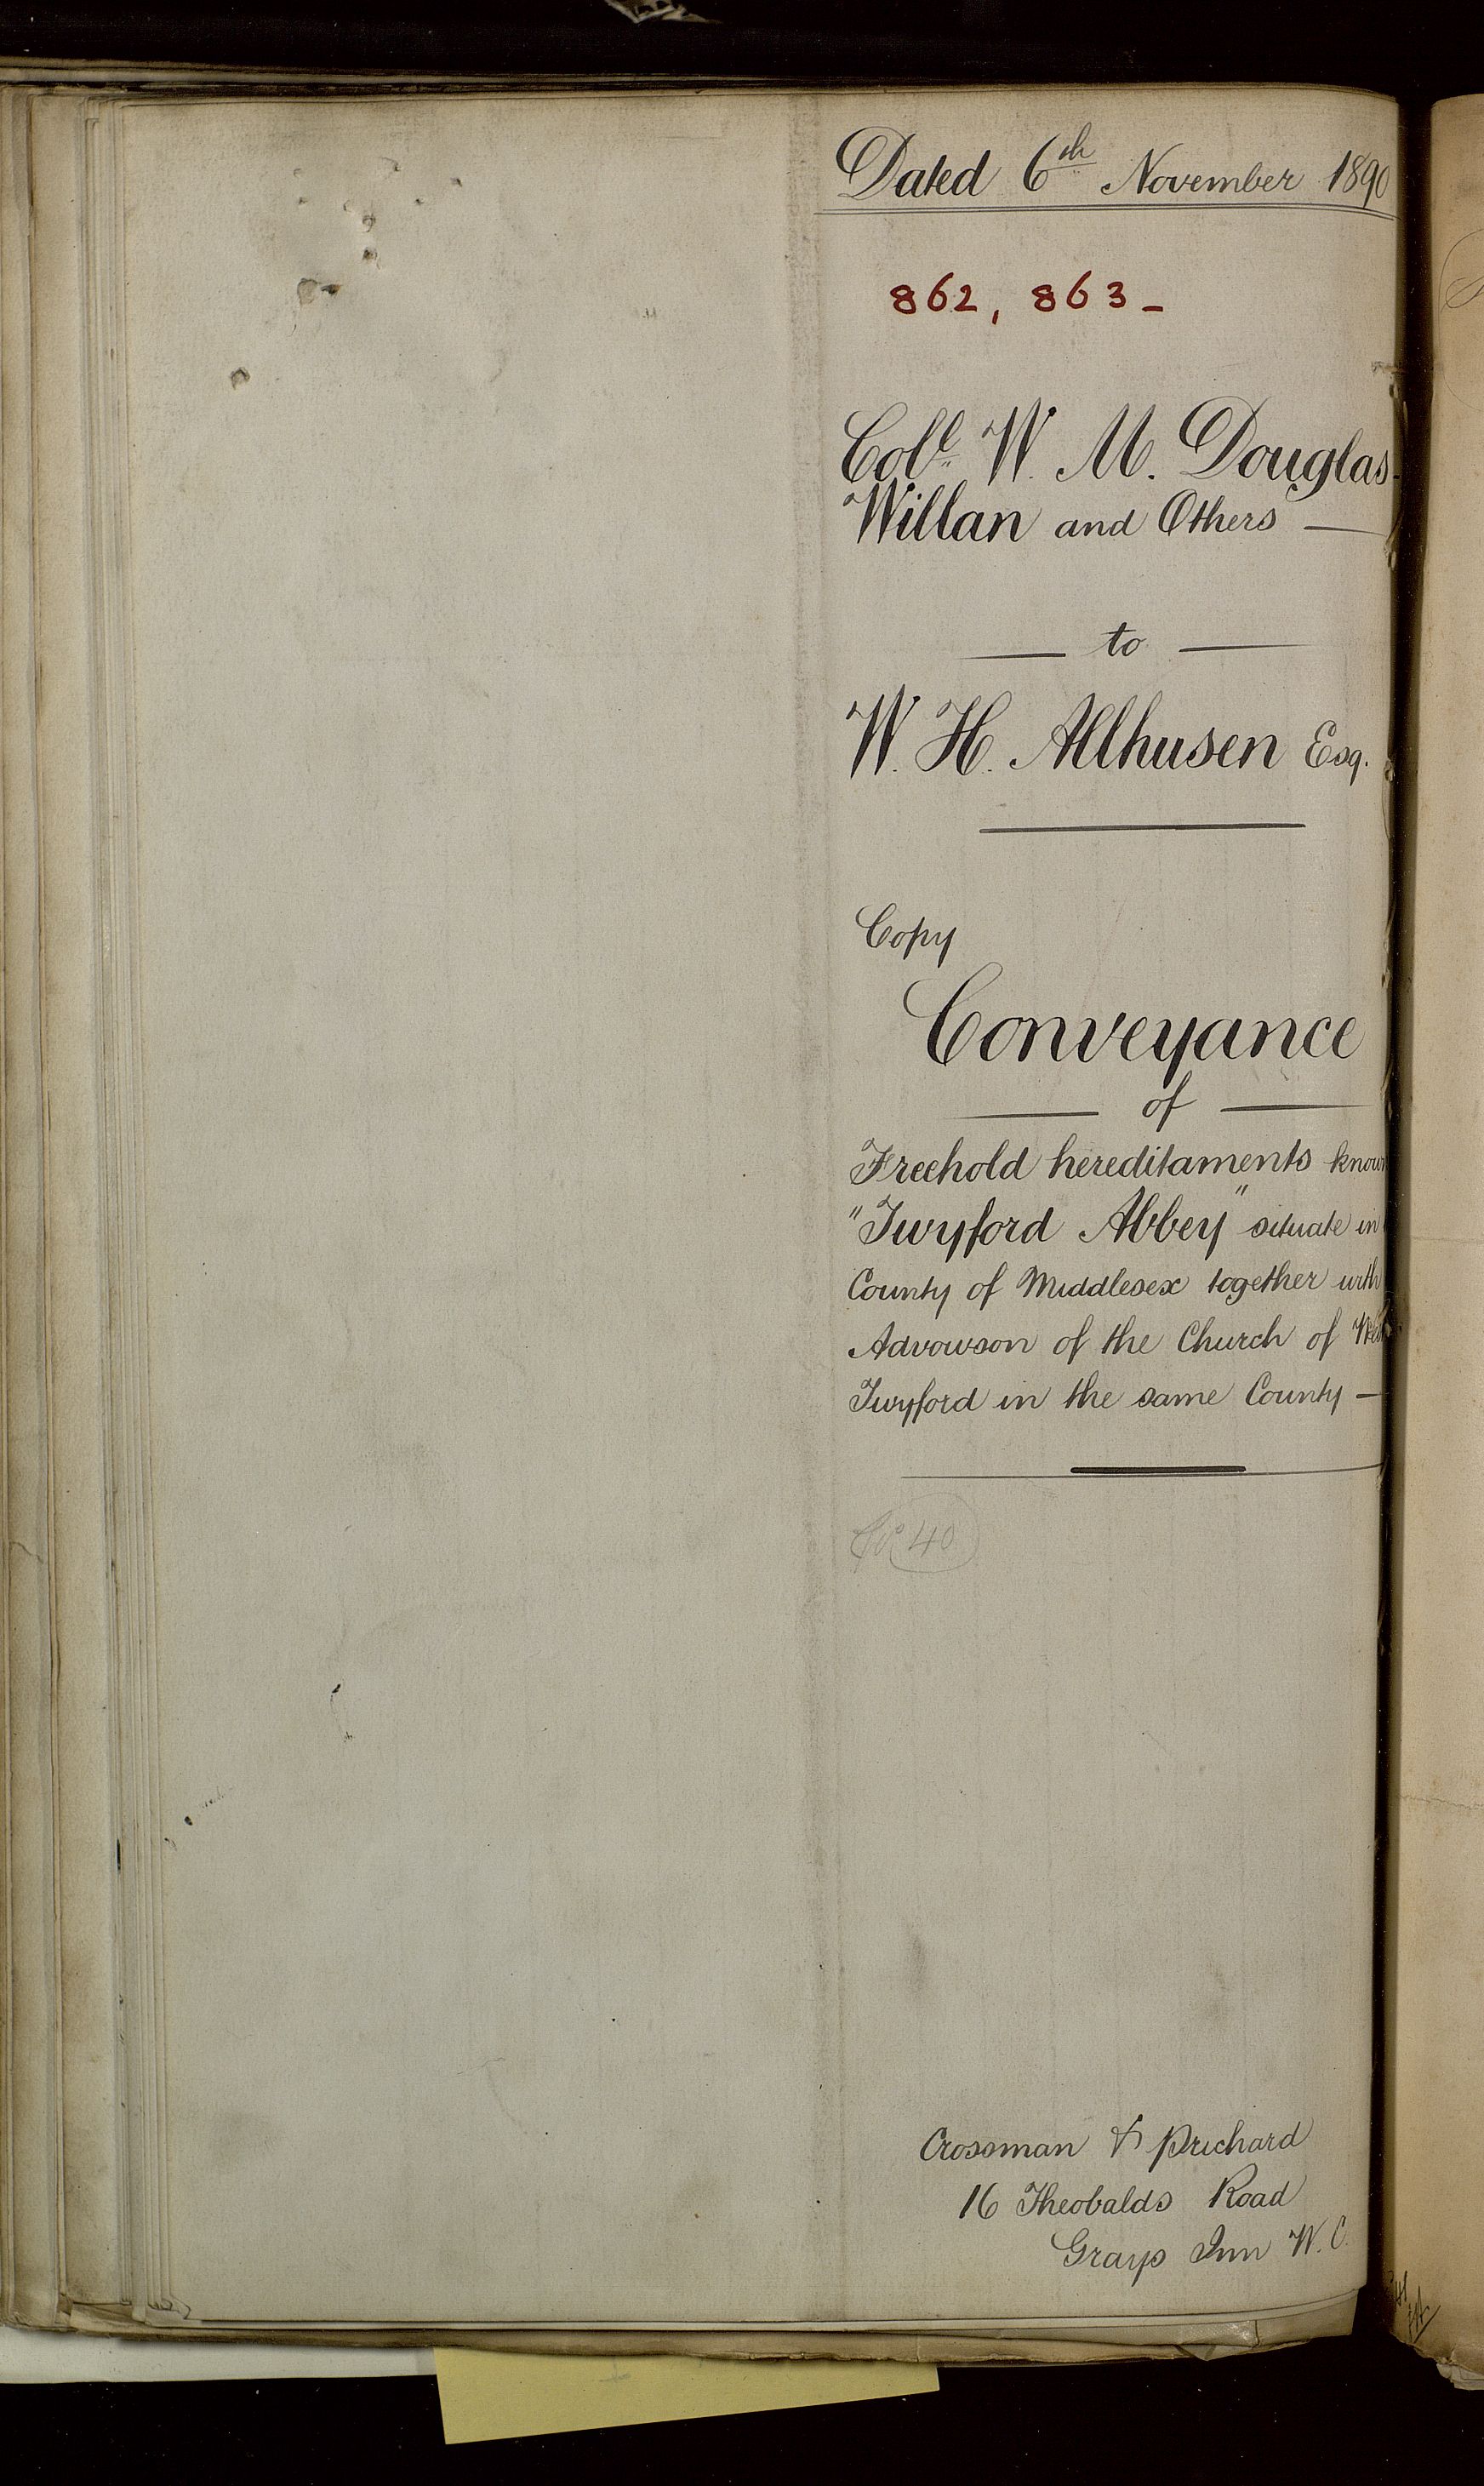 Dated 6th November 1890
862, 863 -
Coll. W. M. Douglas-
Willan and Others —
— to —
W. H. Allhusen Esq.
Copy
Conveyance
— of —
Freehold hereditaments known
"Twyford Abbey" situate in
County of Middlesex together with
Advowson of the Church of
Twyford in the same County —
40
Crossman & Prichard
16 Theobalds Road
Grays Inn W.C.